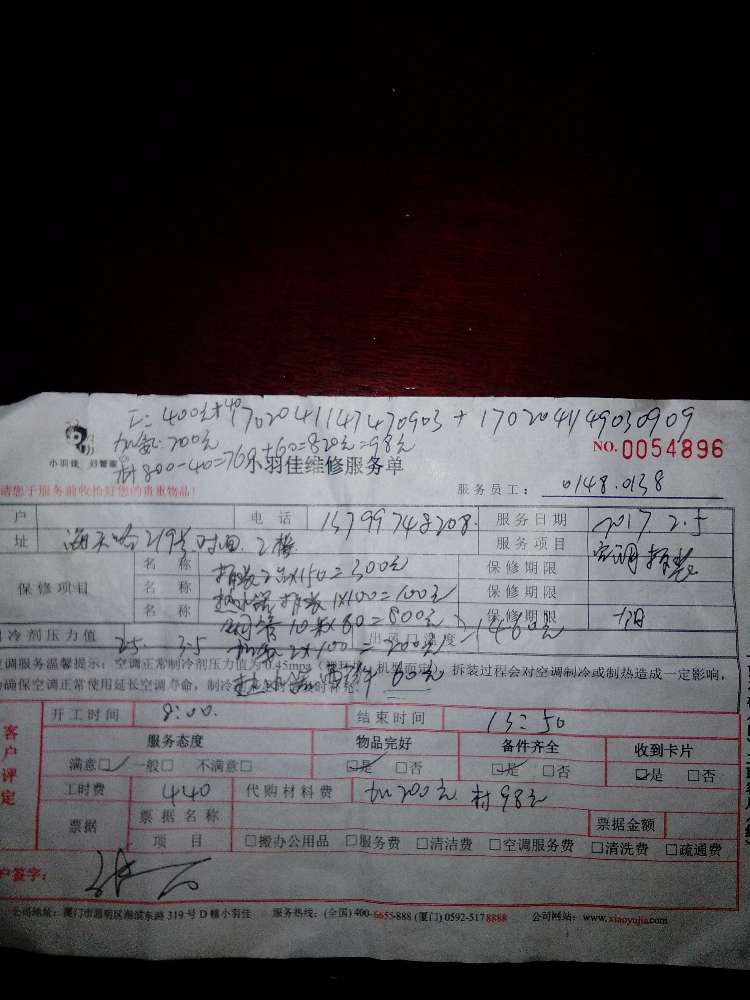 工:400元+40 1702041147470903 + 17020411490309 09
加氨:200元
材800-40=760+60=820元=98元
小羽佳 好管家
小羽佳维修服务单
NO.0054896
请您于服务前收拾好您的贵重物品!
服务员工: 0148.0138
户 电话 13799748208. 服务日期 2017 2.5
址 219号 2楼 服务项目 空调拆装
保修项目
名称 拆装2台x150=300元 保修期限
名称 热水器拆装1x100=100元 保修期限
名称 铜管10米x80=800元 保修期限
冷剂压力值 2.5 3.5 加氨2x100=200元 出风口温度 1460元
空调服务温馨提示:空调正常制冷剂压力值为0.45mpa( 机型而定),拆装过程会对空调制冷或制热造成一定影响,
确保空调正常使用延长空调寿命,制冷 60元
开工时间 8:00. 结束时间 13:50
客户评定
服务态度 物品完好 备件齐全 收到卡片
满意□✓ 一般□ 不满意□ ☑是 □否 ☑是 □否 ☑是 □否
工时费 440 代购材料费 加200元 材98元
票据 票据名称 票据金额
项目 □搬办公用品 □服务费 □清洁费 □空调服务费 □清洗费 □疏通费
户签字:
公司地址:厦门市思明区湖滨东路319号D幢小羽佳 服务热线:(全国)400-6655-888 (厦门)0592-5178888 公司网站:www.xiaoyujia.com